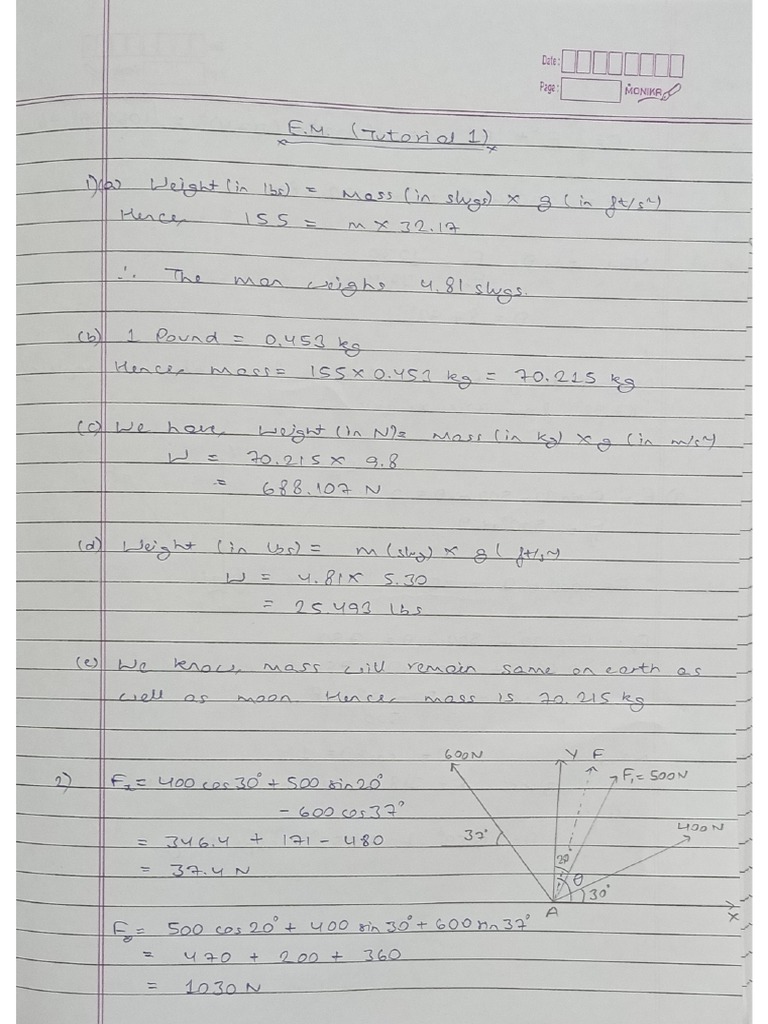 Date:
Page:
MONIKA
E.M. (Tutorial 1)
1)(a) Weight (in lbs) = Mass (in slugs) × g (in ft/s²)
Hence, 155 = m × 32.17
∴ The man weighs 4.81 slugs.
(b) 1 Pound = 0.453 kg
Hence, mass = 155 × 0.453 kg = 70.215 kg
(c) We have, Weight (in N) = Mass (in kg) × g (in m/s²)
W = 70.215 × 9.8
= 688.107 N
(d) Weight (in lbs) = m (slug) × g (ft/s²)
W = 4.81 × 5.30
= 25.493 lbs
(e) We know, mass will remain same on earth as
well as moon. Hence, mass is 70.215 kg
600N Y F
2) Fx = 400 cos 30° + 500 sin 20° F₁ = 500N
- 600 cos 37°
= 346.4 + 171 - 480 37° 400N
= 37.4 N 20 θ 30°
A X
Fy = 500 cos 20° + 400 sin 30° + 600 sin 37°
= 470 + 200 + 360
= 1030 N